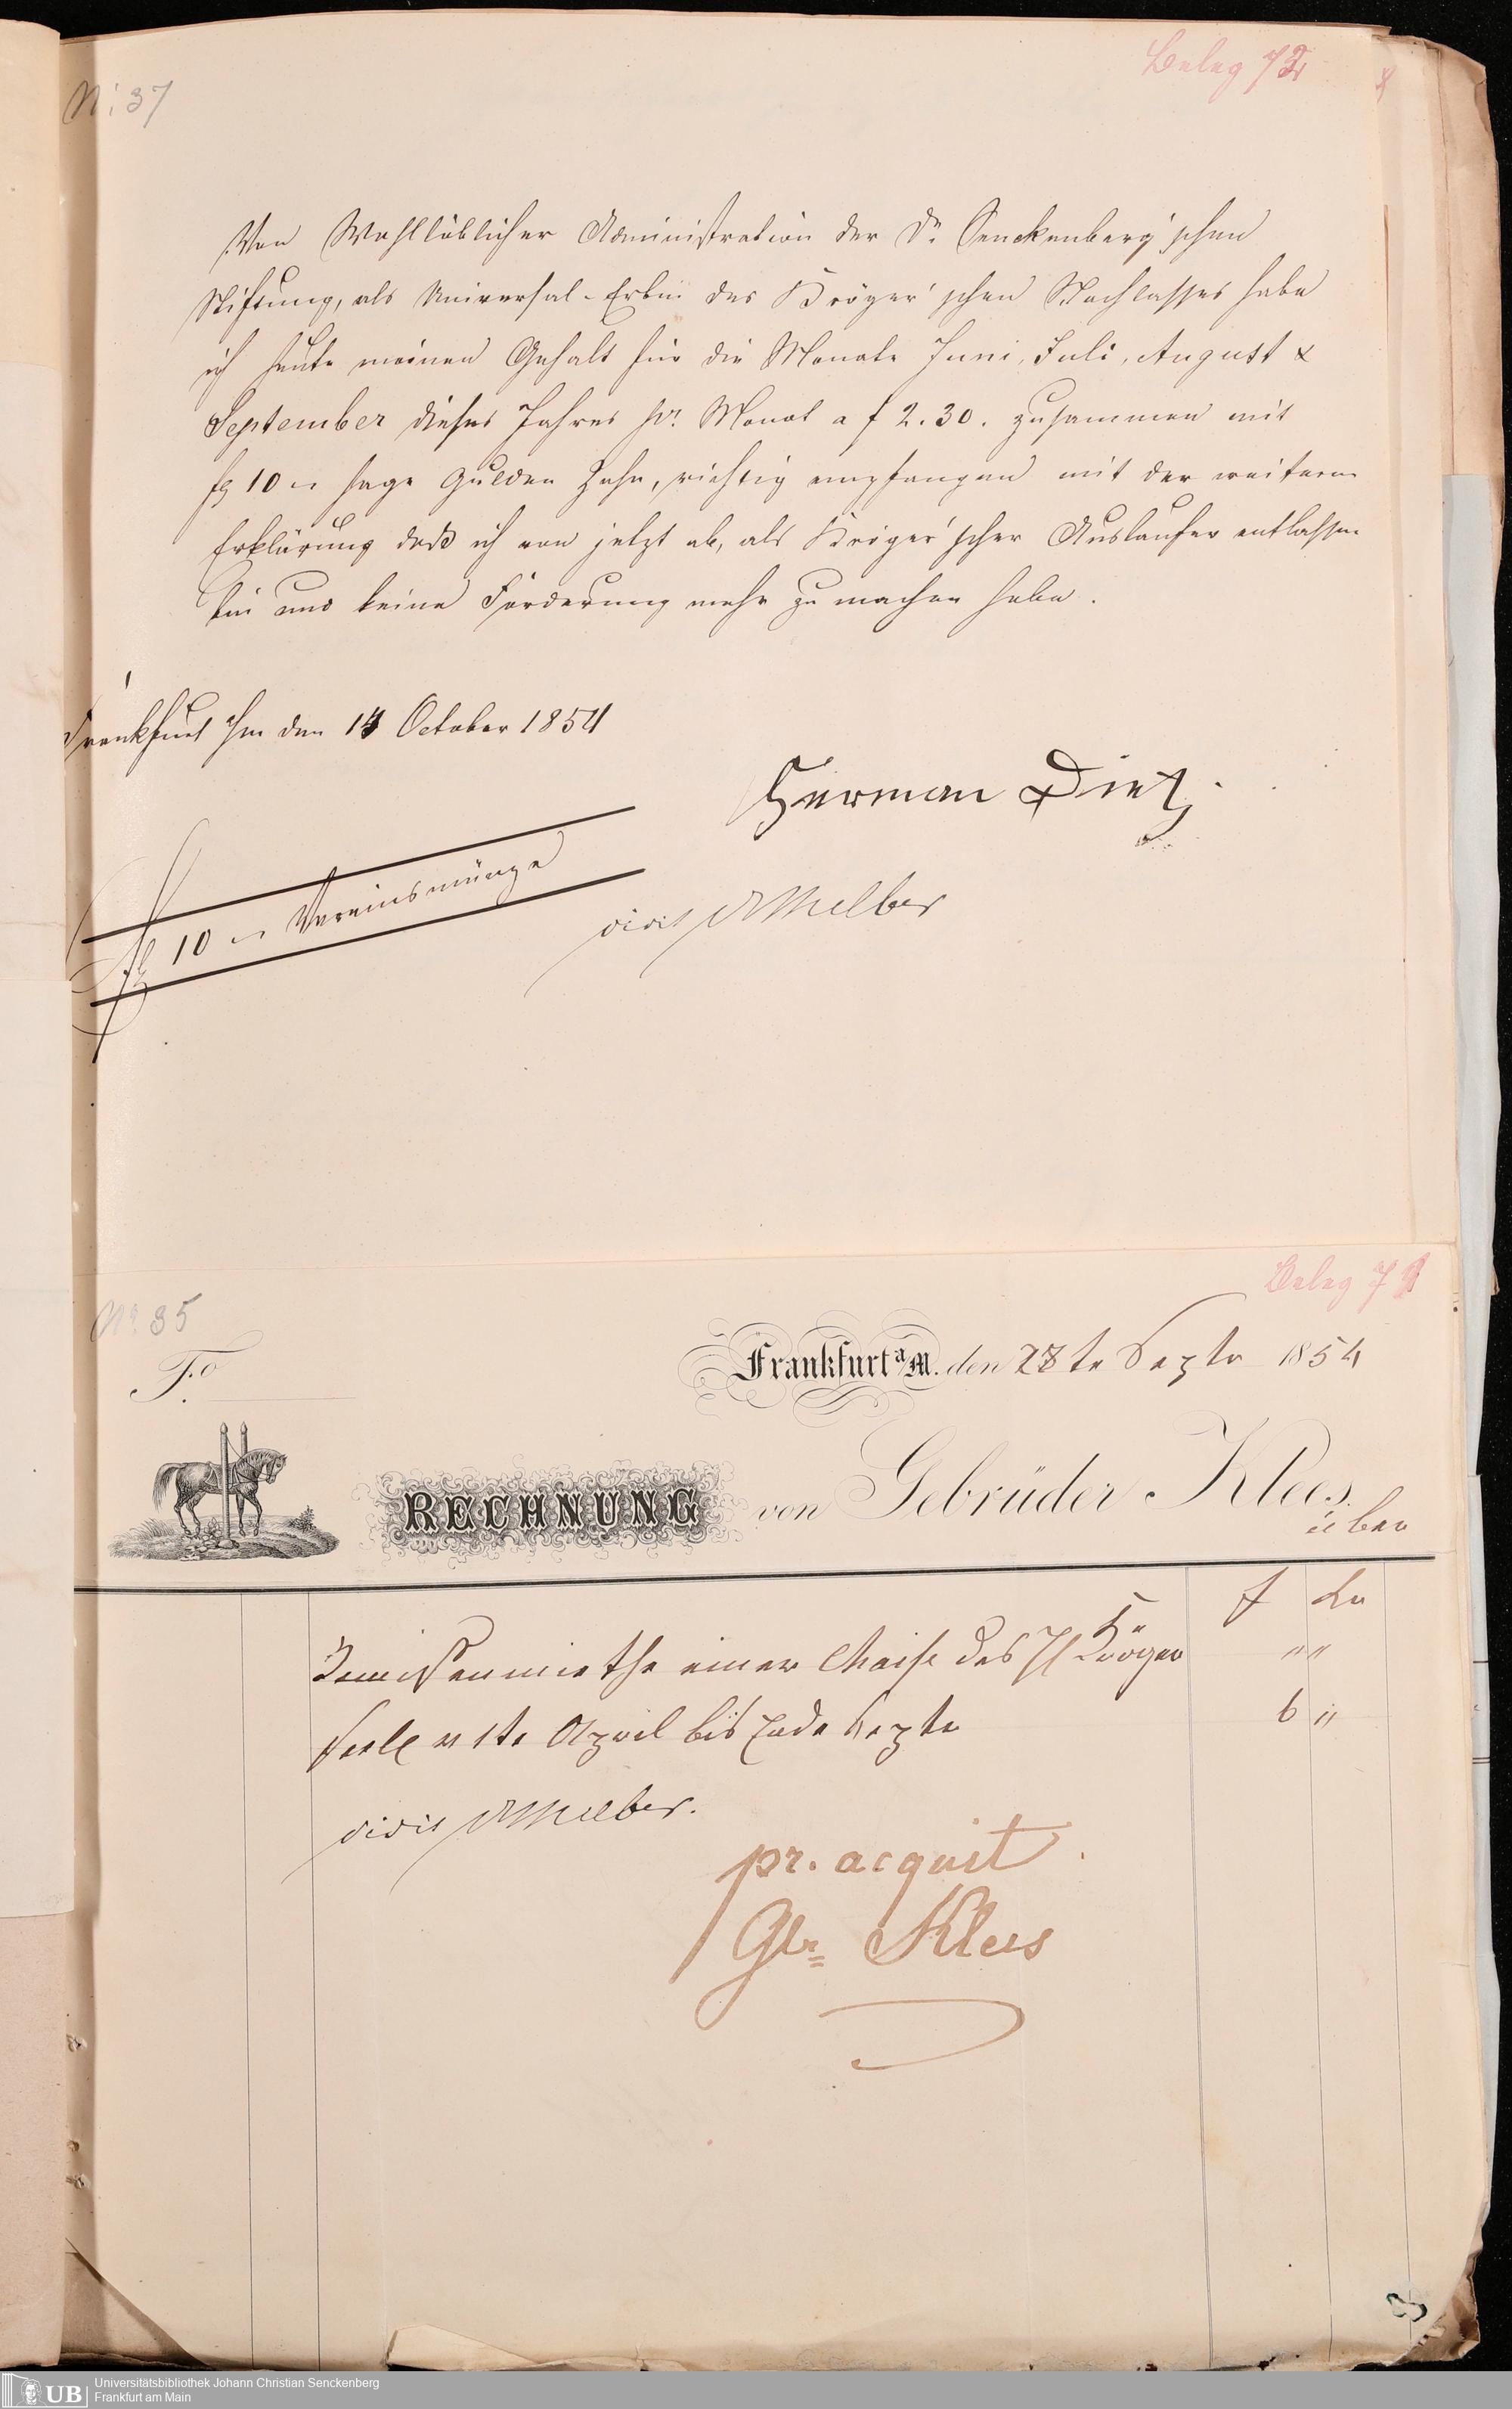 No 37
Beleg 72
Von Wohllöblicher Administration der Dr. Senckenberg'schen
Stiftung, als Universal-Erbin des Kröger'schen Nachlasses habe
ich heute meinen Gehalt für die Monate Juni, Juli, August &
September dieses Jahres pr. Monat a f 2.30. zusammen mit
fl 10 „ sage Gulden Zehn, richtig empfangen mit der weitern
Erklärung daß ich von jetzt ab, als Kröger'scher Auslaufer entlassen
bin und keine Forderung mehr zu machen habe.
Frankfurt a/m den 14 October 1854
Herman Dietz.
fl 10 „ Vereinsmünze
vidit Dr Melber
Beleg 71
No 35
F.o
Frankfurt a/M. den 28te Septr 1854
RECHNUNG von Gebrüder Klees.
über
f Kr
Remisenmiethe einer Chaise des H Kröger
seel v 1te April bis Ende Septr 6 „
vidit Dr Melber.
pr. acquit
Gbr Klees